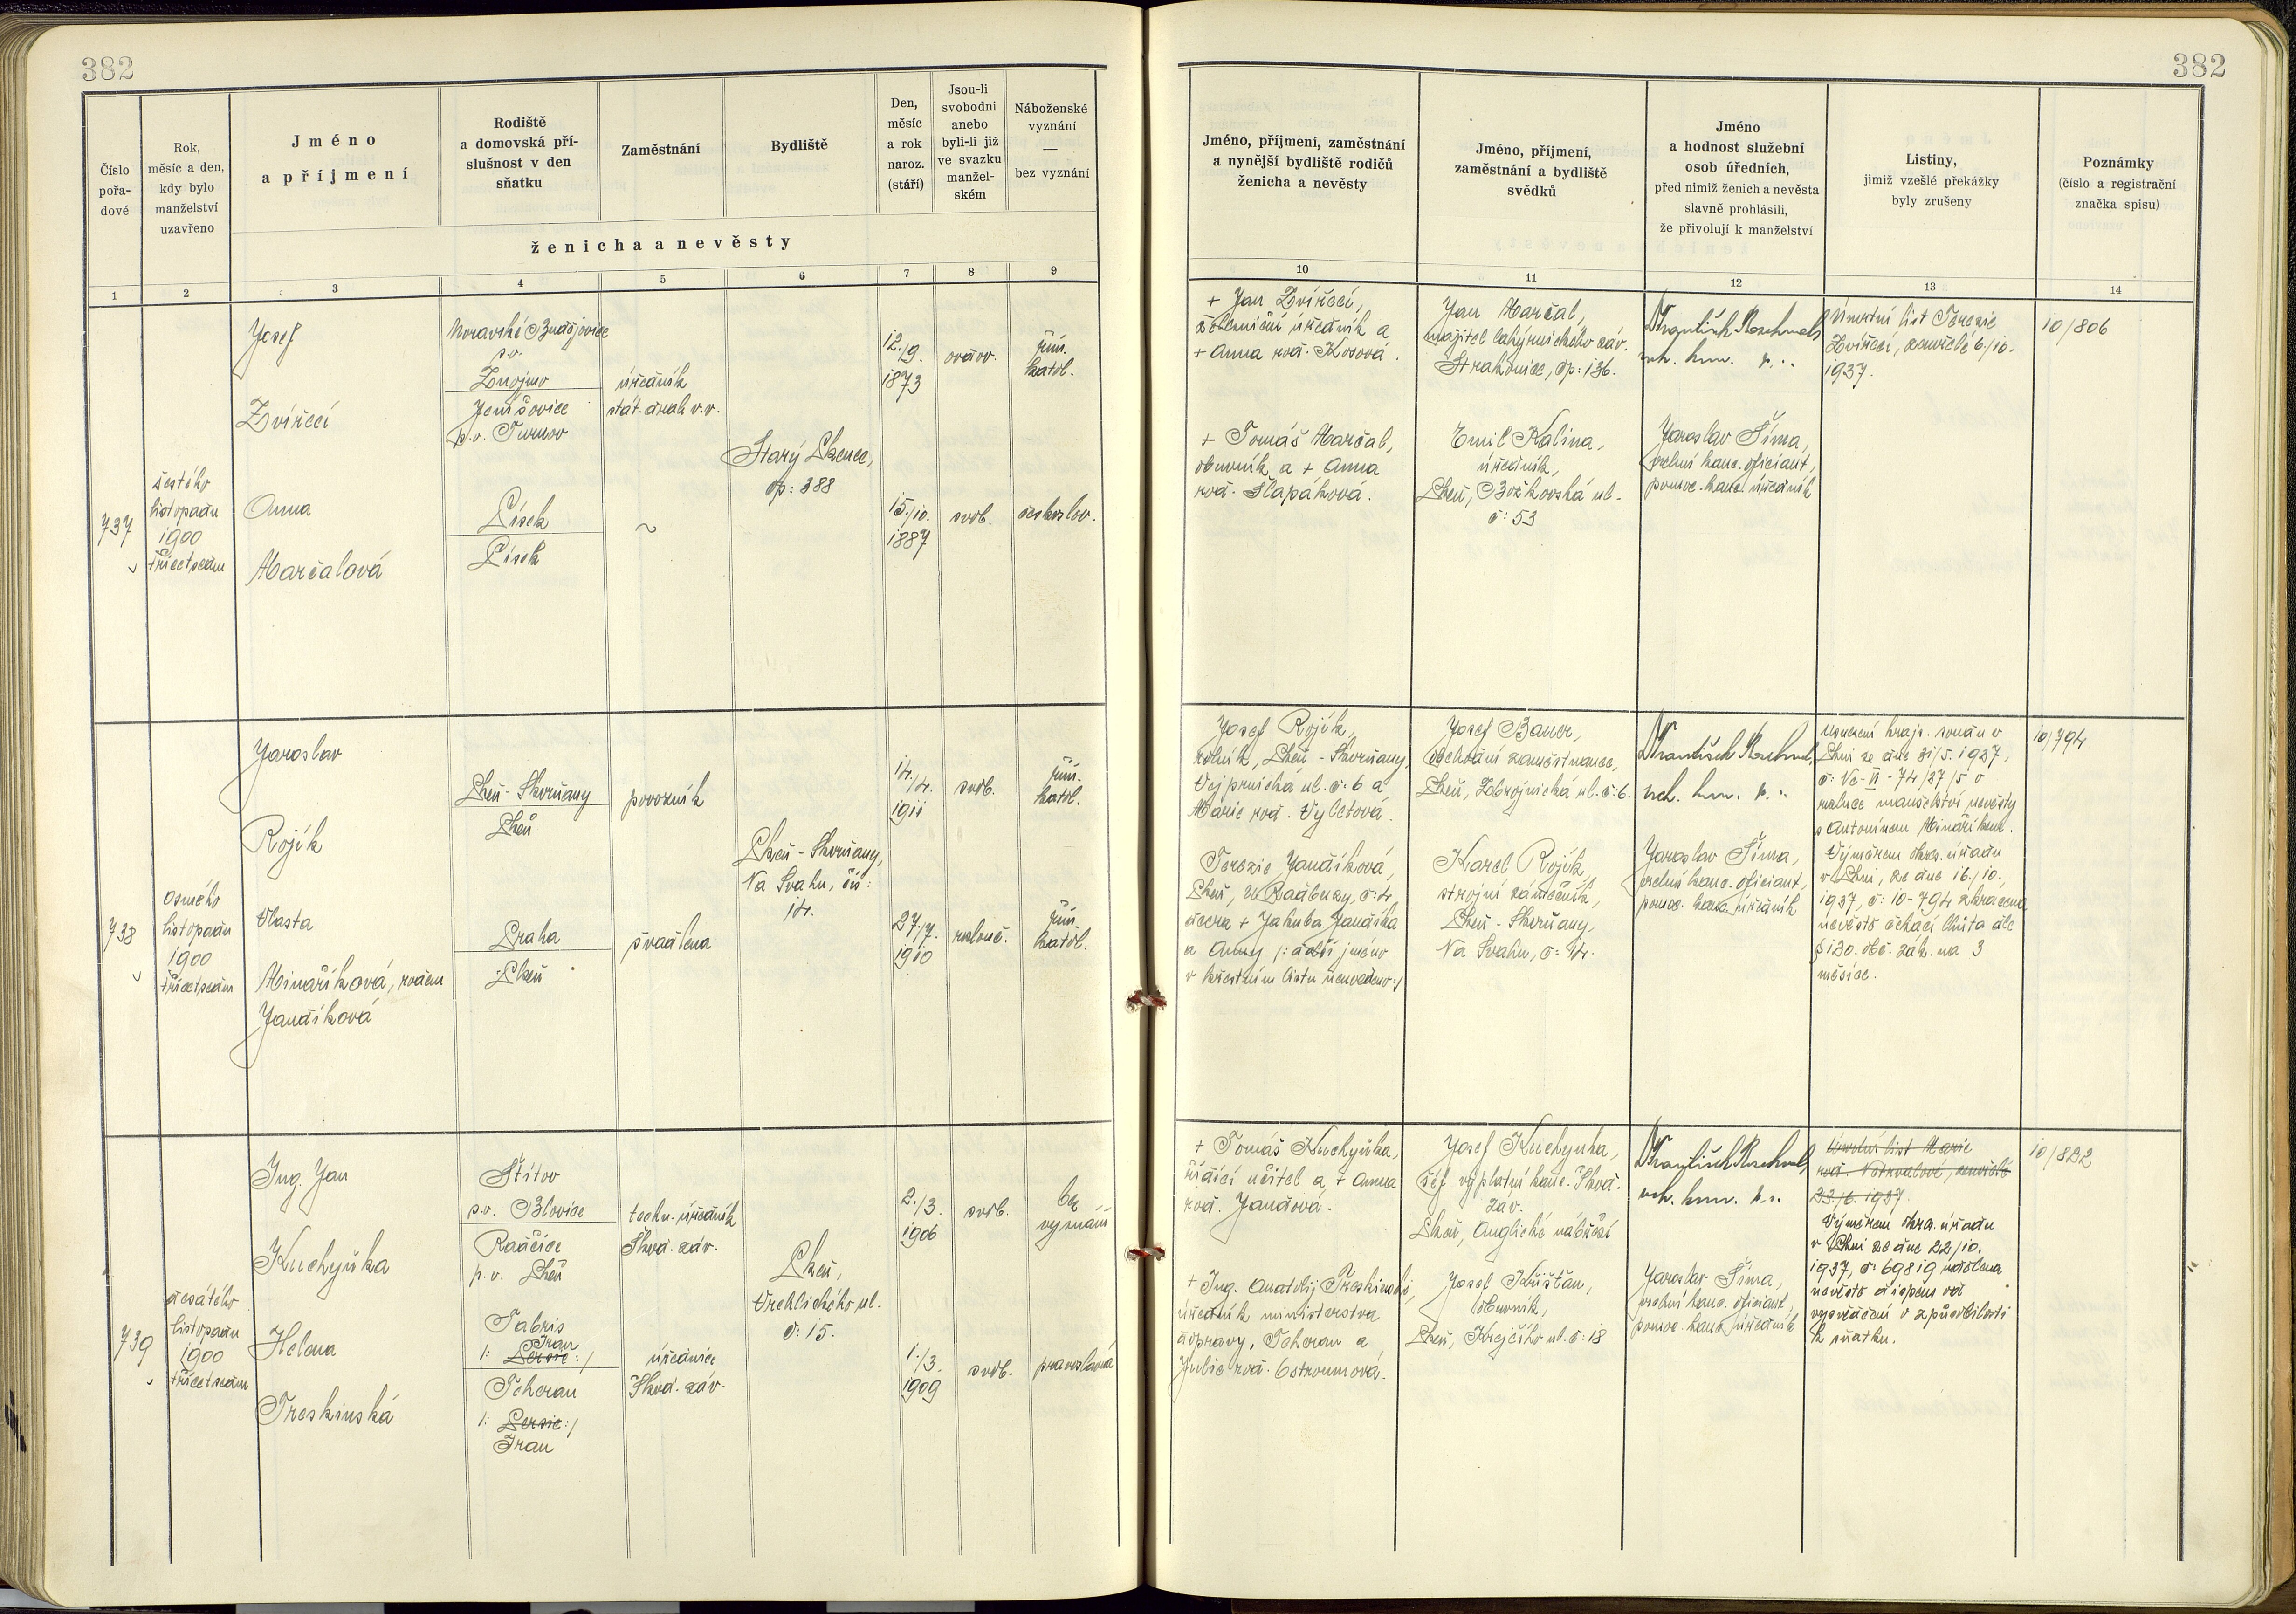 382
Číslo
pořa-
dové
Rok,
měsíc a den,
kdy bylo
manželství
uzavřeno
Jméno
a příjmení
Rodiště
a domovská pří-
slušnost v den
sňatku
Zaměstnání
Bydliště
Den,
měsíc
a rok
naroz.
(stáří)
Jsou-li
svobodni
anebo
byli-li již
ve svazku
manžel-
ském
Náboženské
vyznání
—
bez vyznání
ženicha a nevěsty
1 2 3 4 5 6 7 8 9
737
šestého
listopadu
1900
třicetsedm
Josef
Zvířecí
Moravské Budějovice
p.v.
Znojmo
Jenišovice
p.v. Turnov
úředník
stát. drah v.v.
Starý Plzenec,
čp: 388
12./9.
1873
ovdov.
řím.
katol.
Anna
Marčalová
Písek
Písek
~
15./10.
1887
svob.
českoslov.
738
osmého
listopadu
1900
třicetsedm
Jaroslav
Rojík
Plzeň-Skvrňany
Plzeň
povozník
Plzeň-Skvrňany,
Na Svahu, čís:
14.
14.
/4.
1911
svob.
řím.
katol.
Vlasta
Minaříková, rozen
Jandíková
Praha
Plzeň
švadlena
27./7.
1910
rozlouč.
řím.
katol.
739
desátého
listopadu
1900
třicetsedm
Ing. Jan
Kuchyňka
Štítov
p.v. Blovice
Radčice
p.v. Plzeň
techn. úředník
Škod. záv.
Plzeň,
Vrchlického ul.
č: 15.
2./3.
1906
svob.
bez
vyznání
Helena
Treskinská
Tabris
Iran
/: Persie :/
Teheran
/: Persie :/
Iran
úřednice
Škod. záv.
1./3.
1909
svob.
pravoslavná
382
Jméno, příjmení, zaměstnání
a nynější bydliště rodičů
ženicha a nevěsty
Jméno, příjmení,
zaměstnání a bydliště
svědků
Jméno
a hodnost služební
osob úředních,
před nimiž ženich a nevěsta
slavně prohlásili,
že přivolují k manželství
Listiny,
jimiž vzešlé překážky
byly zrušeny
Poznámky
(číslo a registrační
značka spisu)
10 11 12 13 14
+ Jan Zvířecí,
železniční úředník a
+ Anna roz. Kosová.
+ Tomáš Marčal,
obuvník a + Anna
roz. Šlapáková.
Jan Marčal,
majitel lahýrnického záv.
Strakonice, čp: 136.
Emil Kalina,
úředník,
Plzeň, Božkovská ul.
č: 53
František
Jaroslav Šíma,
kanc. oficiant,
pomoc. kanc. úředník
Úmrtní list Terezie
Zvířecí, zemřelé 6./10.
1937.
10/806
Josef Rojík,
rolník, Plzeň-Skvrňany,
Vejprnická ul. č: 6 a
Marie roz. Vyletová.
Terezie Jandíková,
Plzeň, U Radbuzy, č: 4,
dcera + Jakuba Jandíka
a Anny /: další jméno
v křestním listu neuvedeno :/
Josef Bauer,
obchodní zaměstnanec,
Plzeň, Zbrojnická ul. č: 6.
Karel Rojík,
strojní zámečník,
Plzeň-Skvrňany,
Na Svahu, č: 14.
František
Jaroslav Šíma,
kanc. oficiant,
pomoc. kanc. úředník
Usnesení krajs. soudu v
Plzni ze dne 31/5. 1937,
č: Vc-VI-74/37/5 o
rozluce manželství nevěsty
s Antonínem Minaříkem.
Výměrem okres. úřadu
v Plzni, ze dne 16./10.
1937, č: 10-794 zkrácena
nevěstě čekací lhůta dle
§ 120. obč. zák. na 3
měsíce.
10/794
+ Tomáš Kuchyňka,
řídící učitel a + Anna
roz. Jandová.
+ Ing. Anatolij Treskinský,
úředník ministerstva
dopravy, Teheran a
Julie roz. Ostroumová.
Josef Kuchyňka,
šéf výplatní kanc. Škod.
záv.
Plzeň, Anglické nábřeží
Josef Křišťan,
obuvník,
Plzeň, Krejčího ul. č: 18
František
Jaroslav Šíma,
kanc. oficiant,
pomoc. kanc. úředník
Úmrtní list Marie
roz. zemřelé
23./6. 1937.
Výměrem okr. úřadu
v Plzni ze dne 22/10.
1937, č: 69819 udělena
nevěstě dispens od
vysvědčení o způsobilosti
k sňatku.
10/822